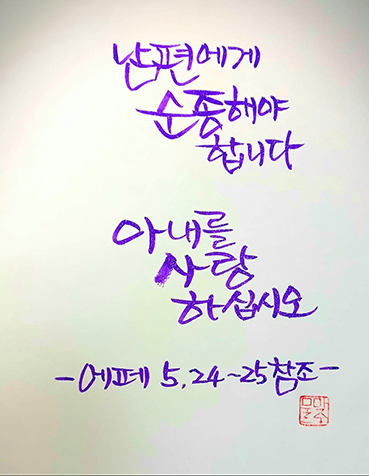 남편에게
순종해야
합니다
아내를
사랑
하십시오
-에페 5,24~25참조-